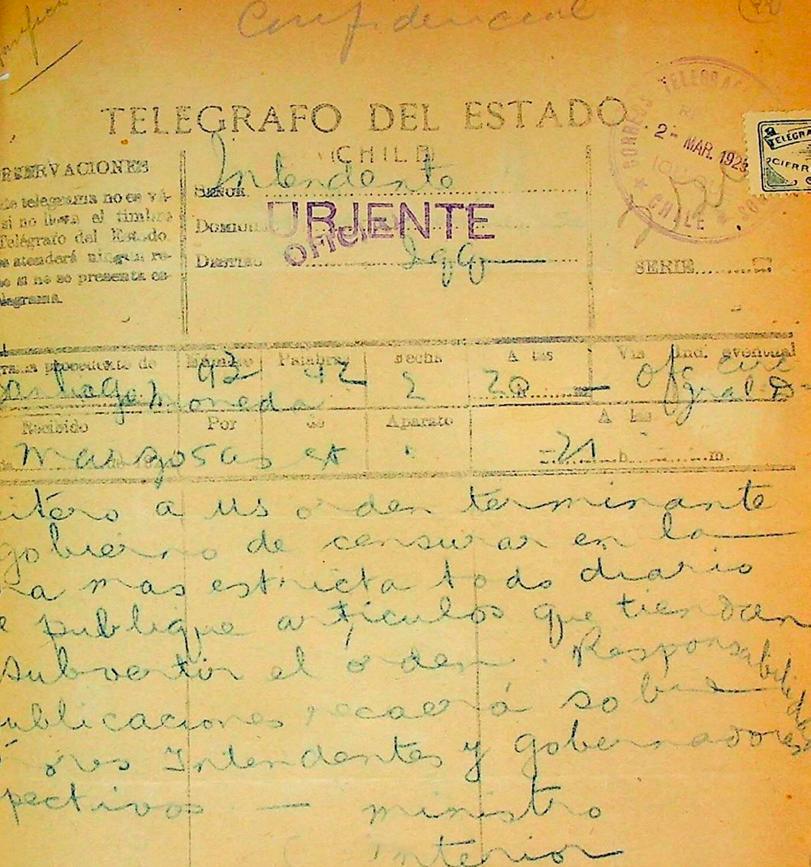 Confidencial
TELEGRAFO DEL ESTADO
(CHILE)
CORREOS TELEGRAF
2- MAR. 192
CHILE
TELEGRA
CIERR
SERVACIONES
te telegrama no es vá-
si no lleva el timbre
Telégrafo del Estado.
se atenderá ningun re-
no si no se presenta es-
elegrama.
SEÑOR Intendente
URJENTE
OFICIAL
DOMICI
DESTINO Iqq
SERIE
grama procedente de Número Palabras Fecha A las Via Ind. eventual
Santiago Moneda 92 42 2 20 — Ofc Circ
Recibido Por de Aparato A las
21 h. m.
eitero a US orden terminante
gobierno de censurar en la
a mas estricta todo diario
e publique artículos que tiendan
subvertir el orden. Responsabilidad
ublicaciones recaerá sobre
ores Intendentes y gobernadores
pectivos — ministro
Interior